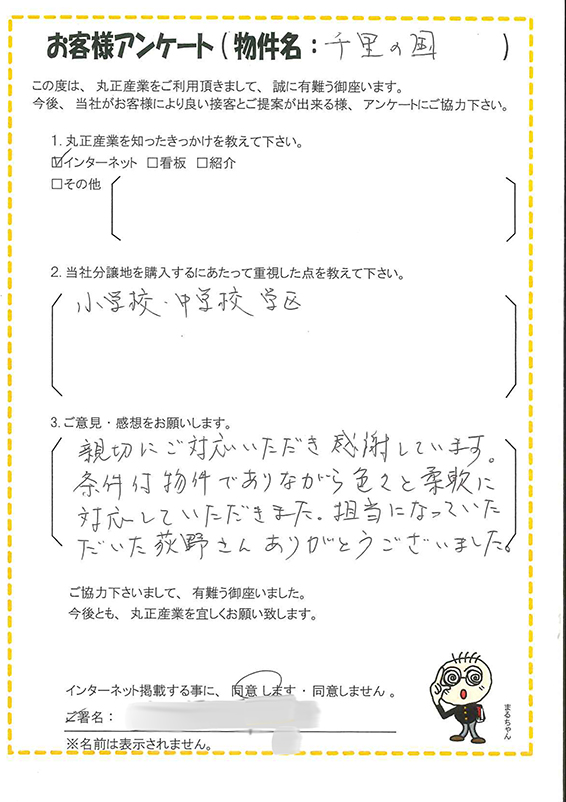 お客様アンケート(物件名:千里の国)
この度は、丸正産業をご利用頂きまして、誠に有難う御座います。
今後、当社がお客様により良い接客とご提案が出来る様、アンケートにご協力下さい。
1.丸正産業を知ったきっかけを教えて下さい。
☑インターネット □看板 □紹介
□その他
2.当社分譲地を購入するにあたって重視した点を教えて下さい。
小学校・中学校 学区
3.ご意見・感想をお願いします。
親切にご対応いただき感謝しています。
条件付物件でありながら色々と柔軟に
対応していただきました。担当になっていた
だいた荻野さんありがとうございました。
ご協力下さいまして、有難う御座いました。
今後とも、丸正産業を宜しくお願い致します。
インターネット掲載する事に、同意します・同意しません。
ご署名:
※名前は表示されません。
まるちゃん